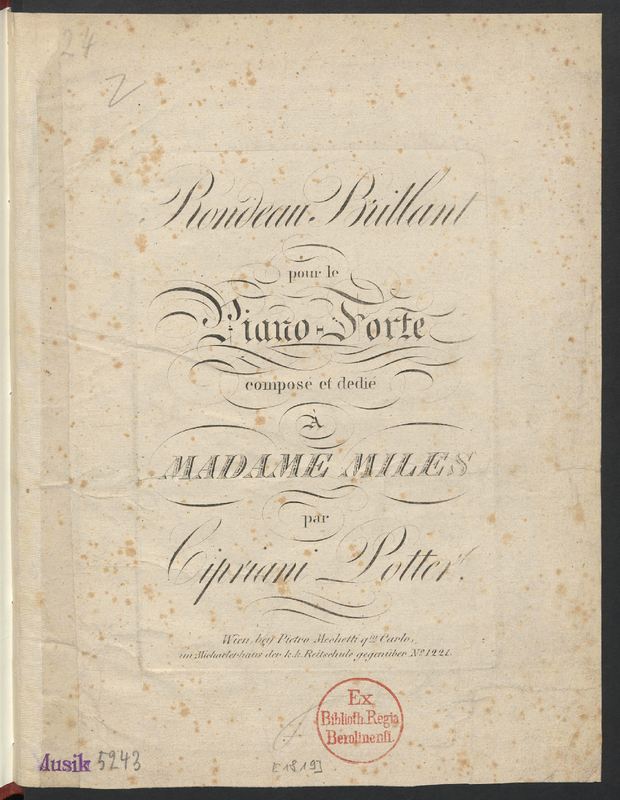 24
2
Rondeau Brillant
pour le
Piano-Forte
composé et dedié
À
MADAME MILES
par
Cipriani Potter.
Wien bey Pietro Mechetti qm Carlo,
im Michaelerhaus der k. k. Reitschule gegenüber No 1221.
Ex
Biblioth. Regia
Berolinensi.
Musik 5243
[1819]